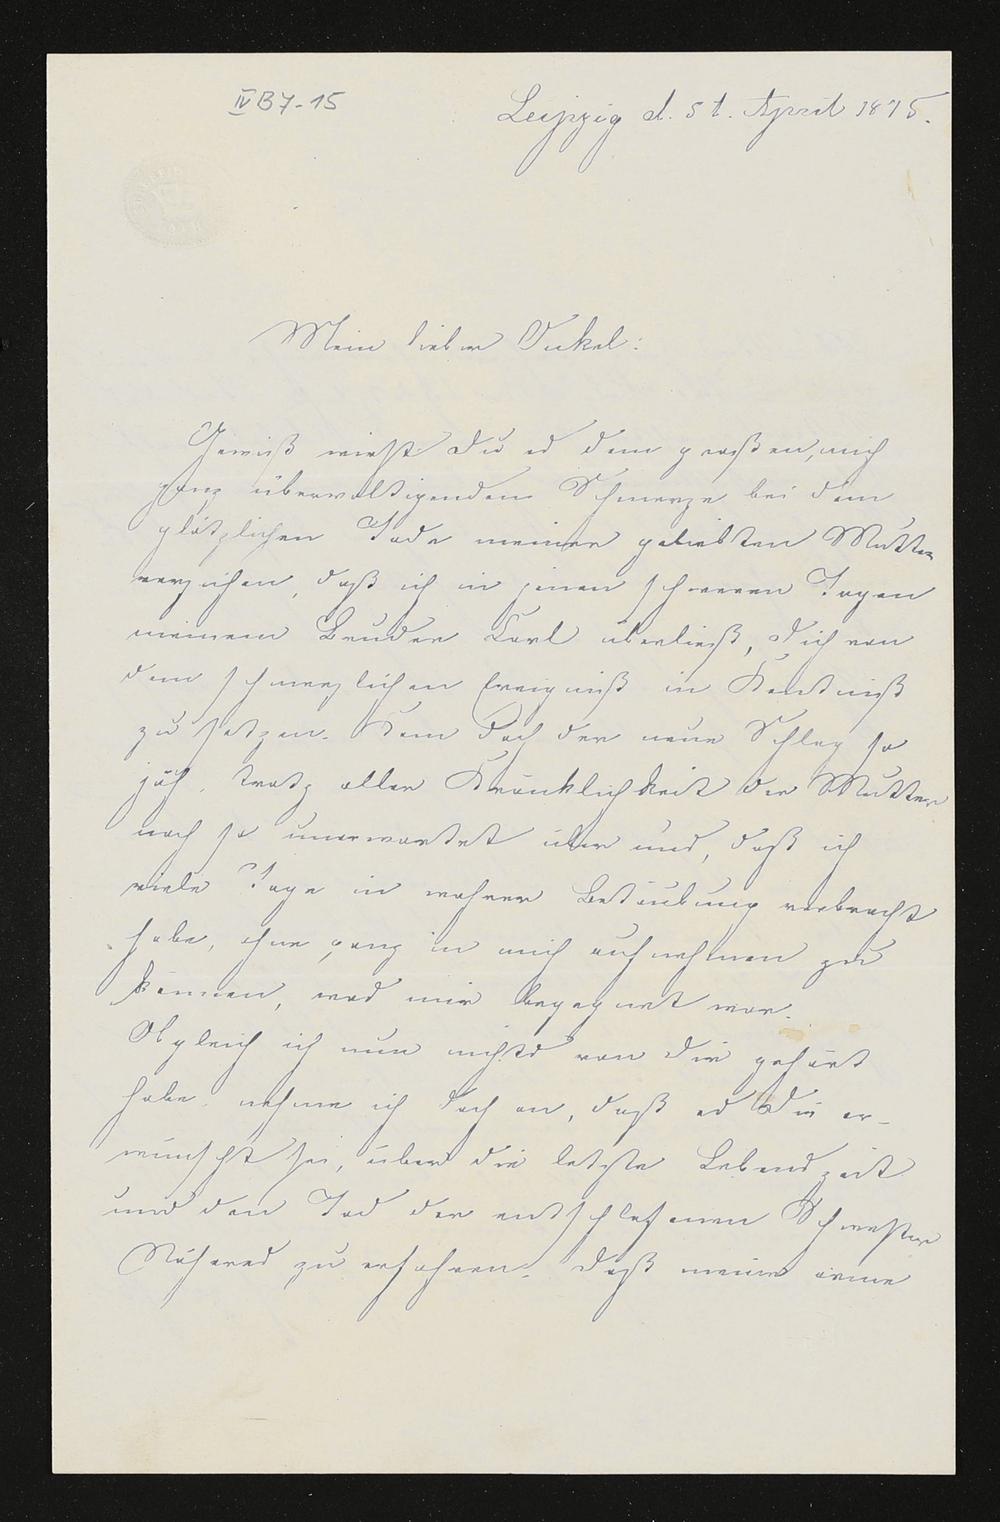 IV B 7-15
Leipzig d. 5 t. April 1875.
Mein lieber Onkel:
Gewiß wirst Du es dem großen, mich
ganz überwältigenden Schmerze bei dem
plötzlichen Tode meiner geliebten Mutter
verzeihen, daß ich in jenen schweren Tagen
meinem Bruder Carl überließ, Dich von
dem schmerzlichen Ereigniß in Kentniß
zu setzen. Kam doch der neue Schlag so
jäh, trotz aller Kränklichkeit der Mutter
noch so unerwartet über uns, daß ich
viele Tage in wahrer Betäubung verbracht
habe, ohne ganz in mich aufnehmen zu
können, was mir begegnet war.
Obgleich ich nun nichts von Dir gehört
habe nehme ich doch an, daß es Dir er-
wünscht sei, über die letzte Lebenszeit
und den Tod der entschlafenen Schwester
Näheres zu erfahren. Daß meine arme